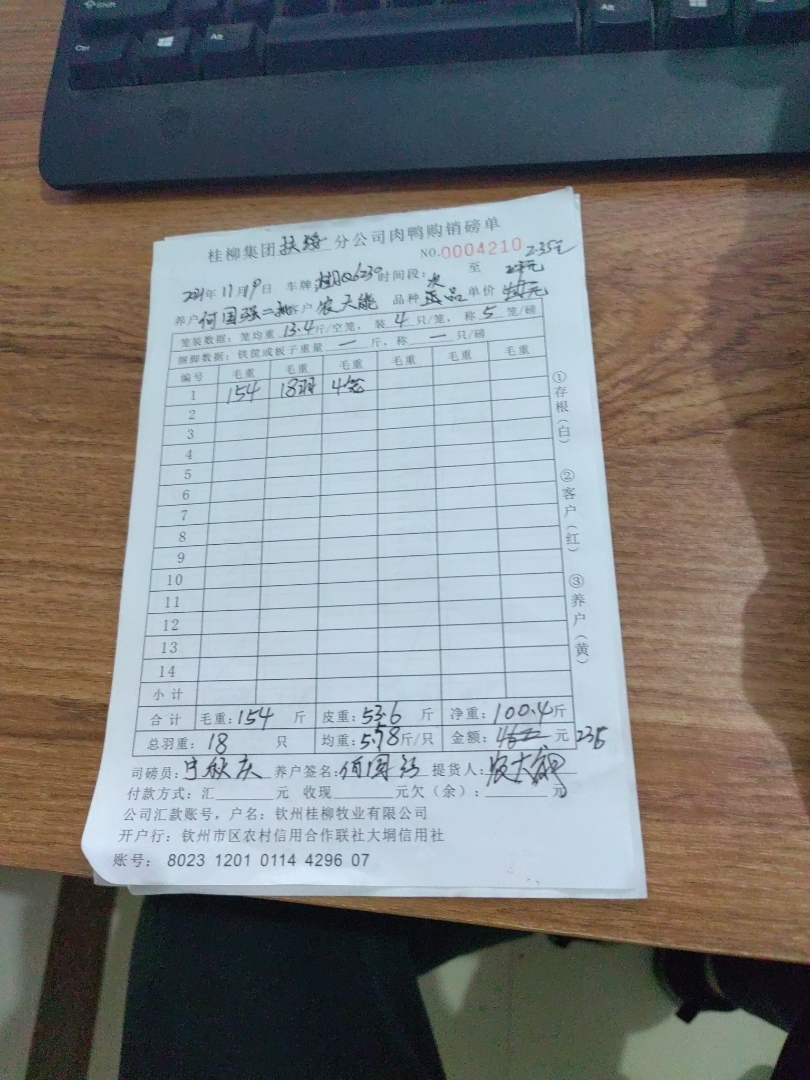 Shift
Ctrl Alt Alt
桂柳集团扶绥分公司肉鸭购销磅单
NO.0004210 2.35元
2021年11月9日 车牌 时间段： 至
养户何国强二批客户农天能 品种 正品 单价
笼装数据：笼均重13.4斤/空笼，装4只/笼，称5笼/磅
捆脚数据：铁筐或板子重量一斤，称一只/磅
编号 毛重 毛重 毛重 毛重 毛重 毛重
1 154 18羽 4笼
2
3
4
5
6
7
8
9
10
11
12
13
14
小计
合计 毛重：154斤 皮重：53.6斤 净重：100.4斤
总羽重：18只 均重：5.58斤/只 金额： 元 236
①存根（白） ②客户（红） ③养户（黄）
司磅员： 养户签名：何国强 提货人：
付款方式：汇 元 收现 元欠（余）： 元
公司汇款账号，户名：钦州桂柳牧业有限公司
开户行：钦州市区农村信用合作联社大垌信用社
账号： 8023 1201 0114 4296 07